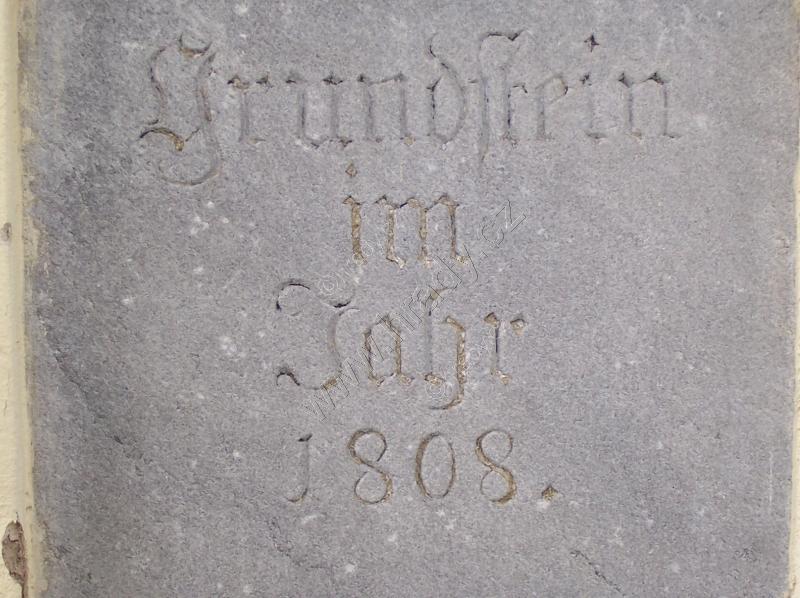 Grundstein
im
Jahr
1808.
© www.hrady.cz